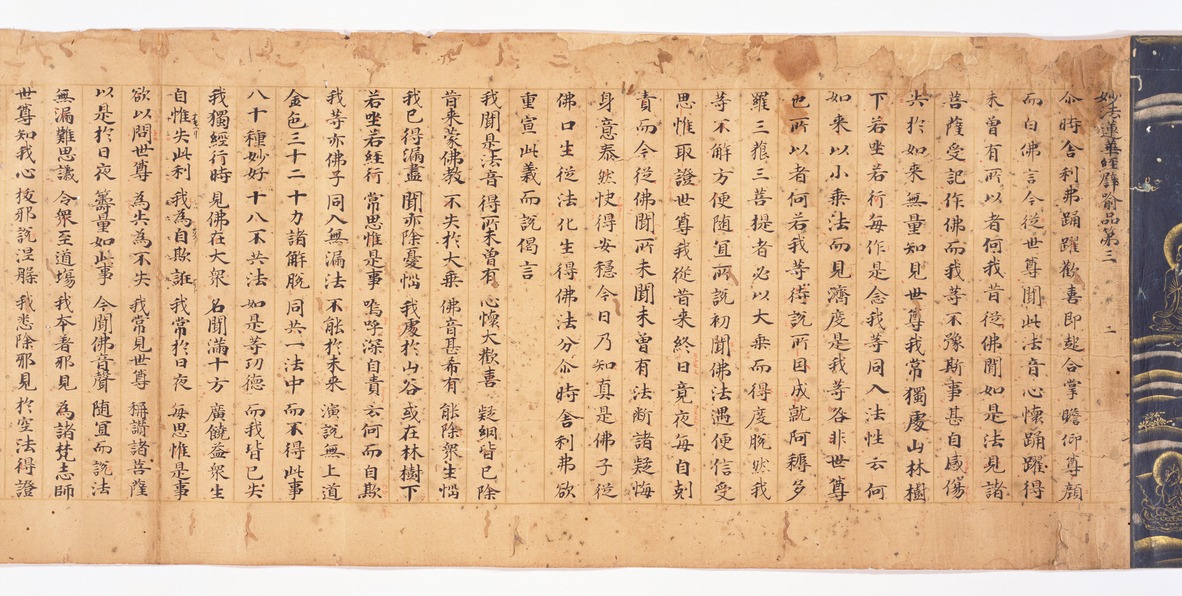 妙法蓮華經譬喻品第三　二
尒時舍利弗踊躍歡喜即起合掌瞻仰尊顔
而白佛言今從世尊聞此法音心懷踊躍得
未曾有所以者何我昔從佛聞如是法見諸
菩薩受記作佛而我等不豫斯事甚自感傷
失於如來無量知見世尊我常獨處山林樹
下若坐若行每作是念我等同入法性云何
如来以小乘法而見濟度是我等咎非世尊
也所以者何若我等待說所因成就阿耨多
羅三藐三菩提者必以大乘而得度脫然我
等不解方便隨宜所說初聞佛法遇便信受
思惟取證世尊我從昔来終日竟夜每自剋
責而今從佛聞所未聞未曾有法斷諸疑悔
身意泰然快得安穩今日乃知真是佛子從
佛口生從法化生得佛法分尒時舍利弗欲
重宣此義而說偈言
我聞是法音 得所未曾有 心懷大歡喜 疑網皆已除
昔来蒙佛教 不失於大乘 佛音甚希有 能除衆生惱
我已得漏盡 聞亦除憂惱 我處於山谷 或在林樹下
若坐若經行 常思惟是事 嗚呼深自責 云何而自欺
我等亦佛子 同入無漏法 不能於未來 演說無上道
金色三十二 十力諸解脫 同共一法中 而不得此事
八十種妙好 十八不共法 如是等功德 而我皆已失
我獨經行時 見佛在大衆 名聞滿十方 廣饒益衆生
自惟失此利 我為自欺誑 我常於日夜 每思惟是事
欲以問世尊 為失為不失 我常見世尊 稱讚諸菩薩
以是於日夜 籌量如此事 今聞佛音聲 隨宜而說法
無漏難思議 令衆至道場 我本著邪見 為諸梵志師
世尊知我心 拔邪說涅槃 我悉除邪見 於空法得證